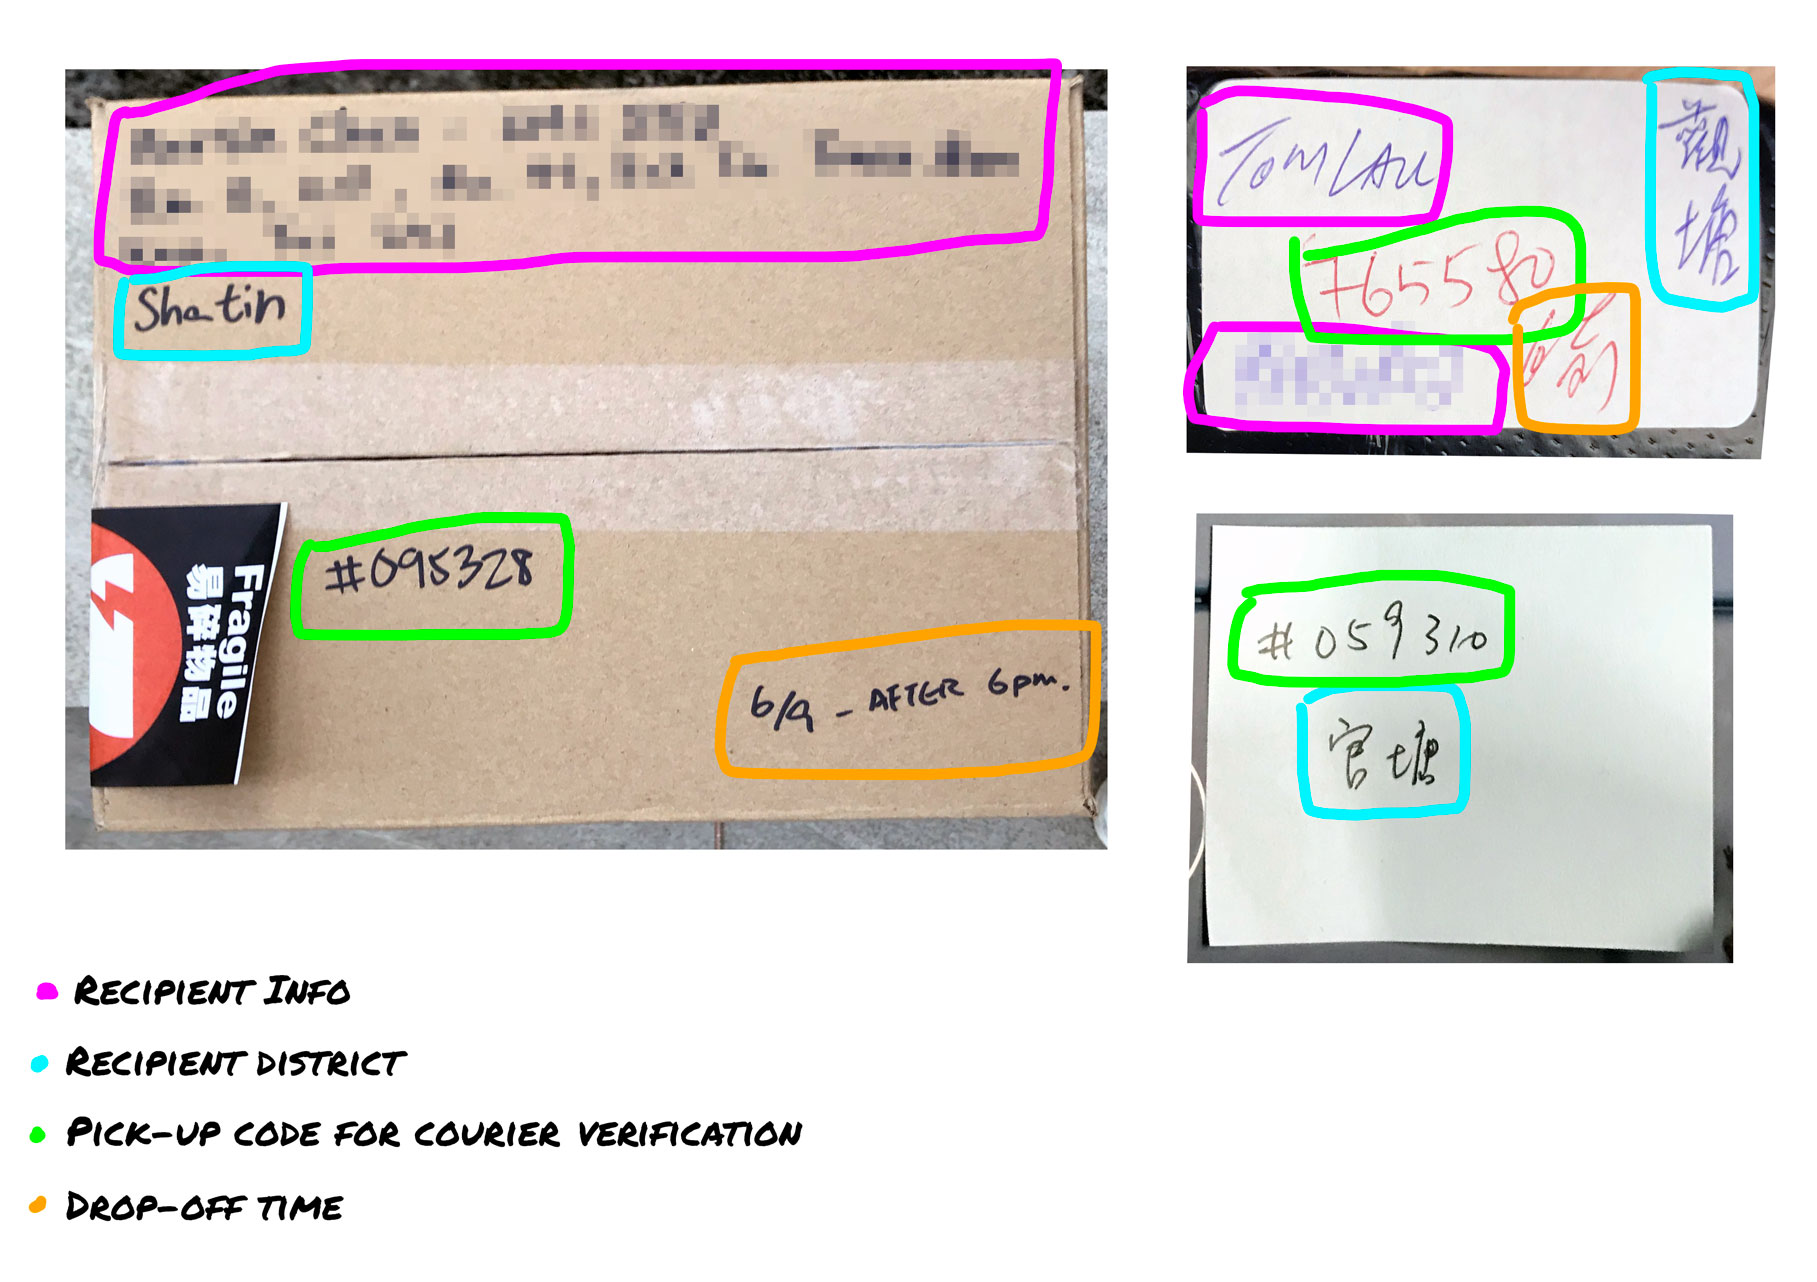 Shatin
#095328
Fragile
易碎物品
6/9 - AFTER 6pm.
TOM LAU
觀塘
765580
#059310
官塘
RECIPIENT INFO
RECIPIENT DISTRICT
PICK-UP CODE FOR COURIER VERIFICATION
DROP-OFF TIME